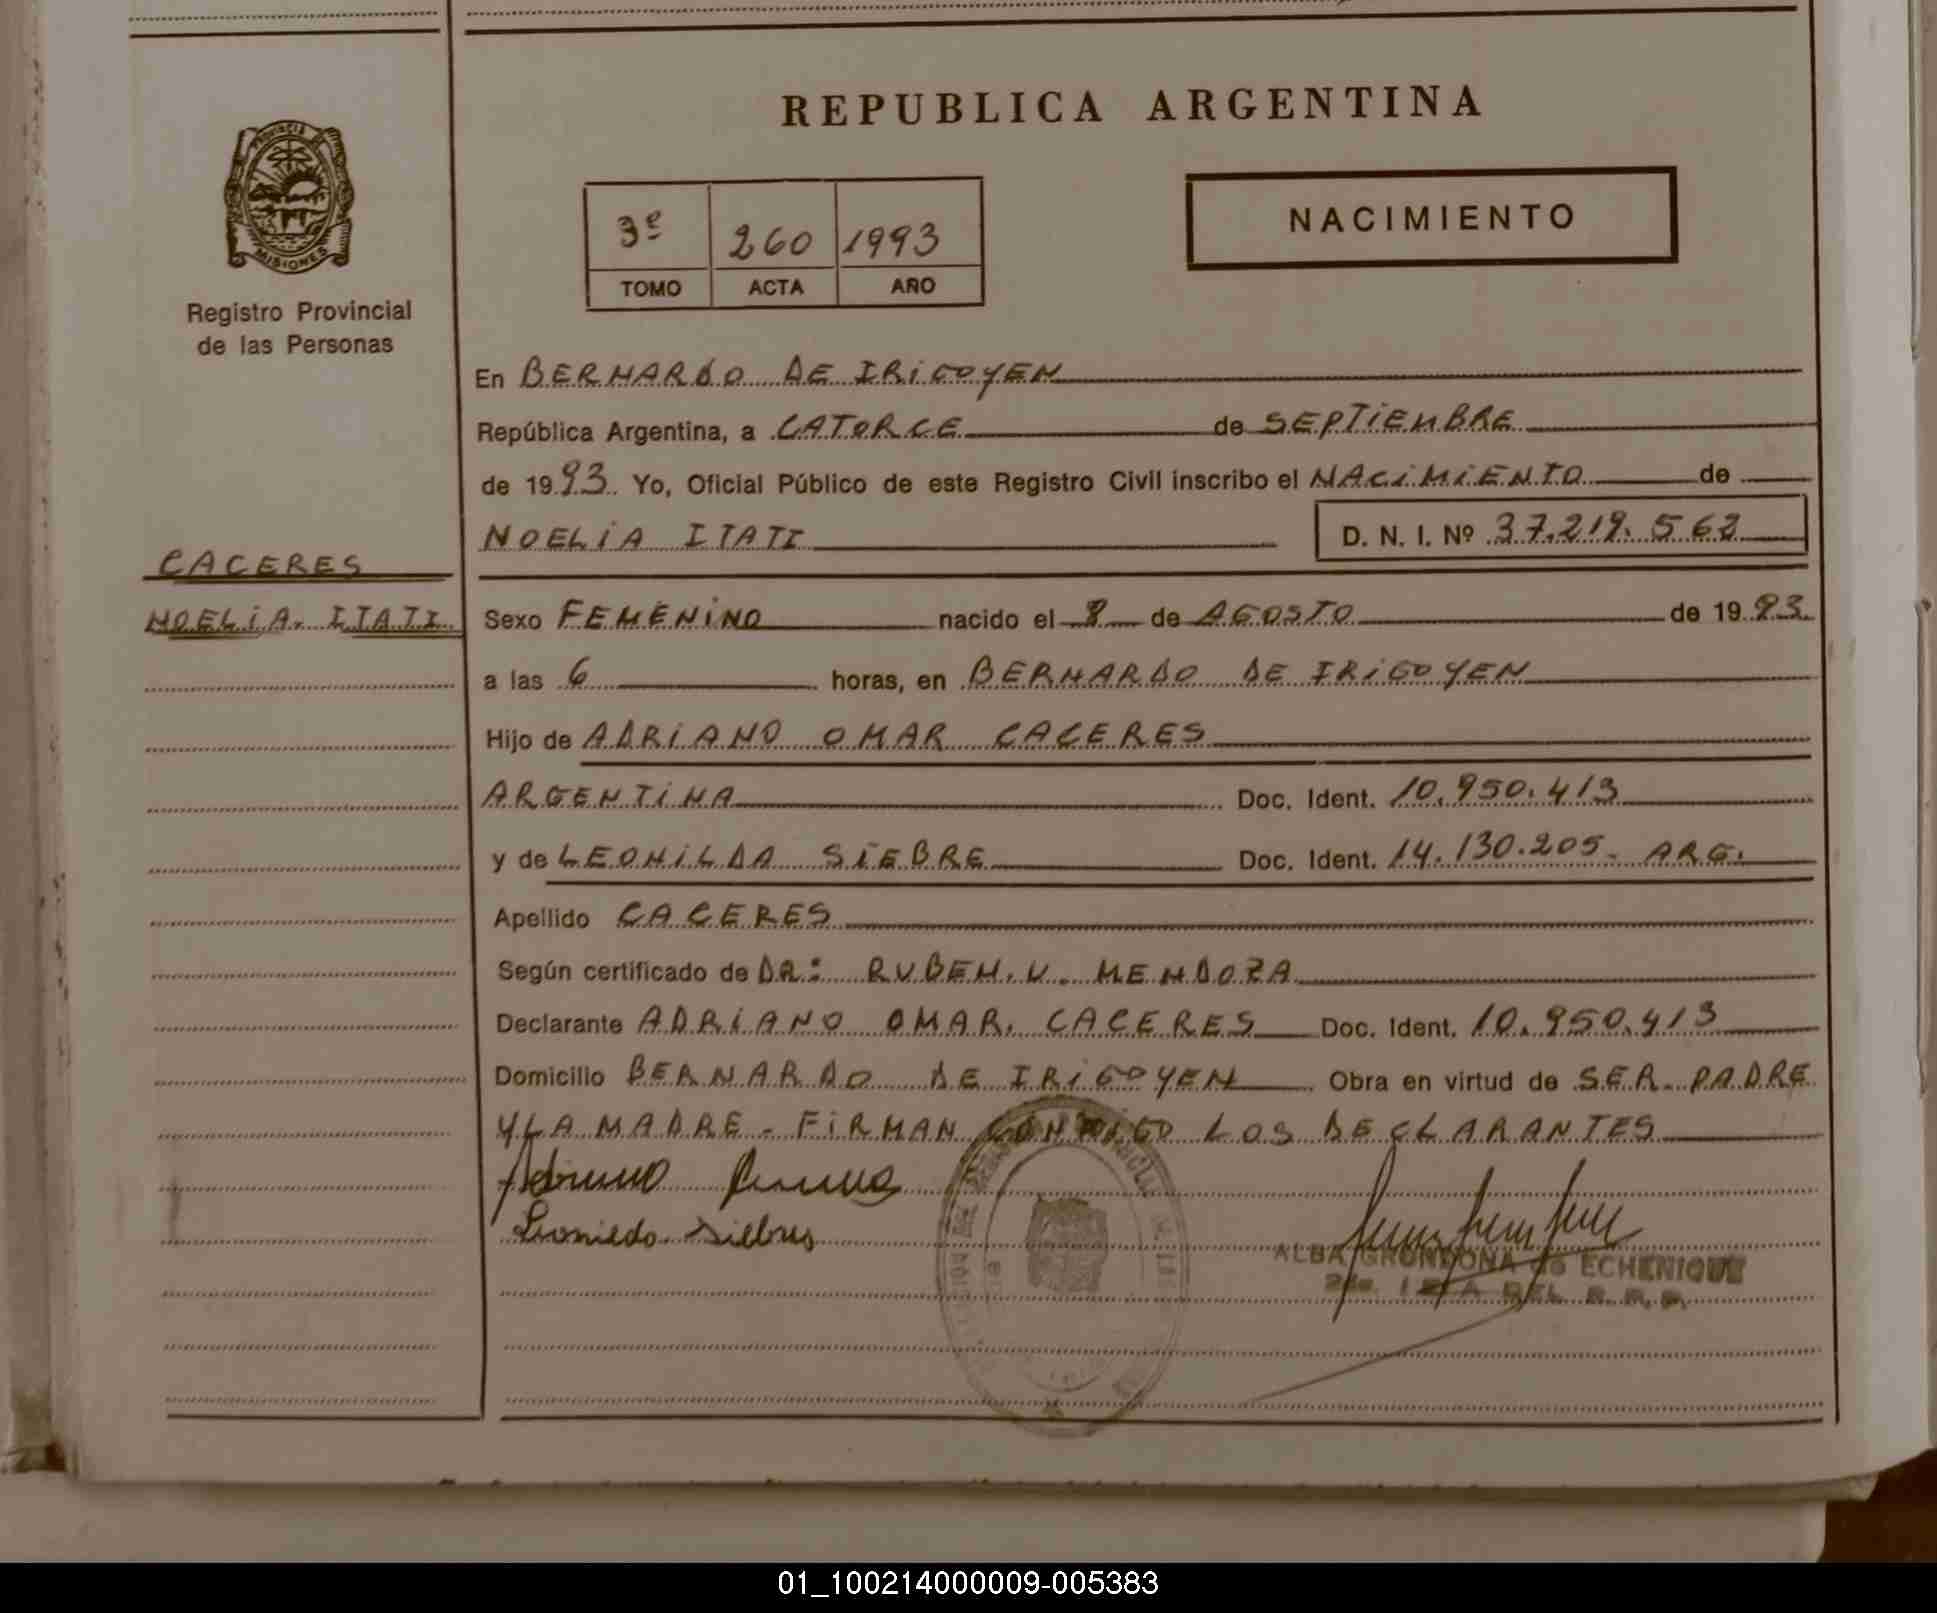 REPUBLICA ARGENTINA
PROVINCIA
MISIONES
Registro Provincial
de las Personas
3º 260 1993
TOMO ACTA AÑO
NACIMIENTO
En BERNARDO DE IRIGOYEN
República Argentina, a CATORCE de SEPTIEMBRE
de 1993. Yo, Oficial Público de este Registro Civil inscribo el NACIMIENTO de
NOELIA ITATI D. N. I. Nº 37.219.562
CACERES
NOELIA. ITATI
Sexo FEMENINO nacido el 8 de AGOSTO de 1993.
a las 6 horas, en BERNARDO DE IRIGOYEN
Hijo de ADRIANO OMAR CACERES
ARGENTINA Doc. Ident. 10.950.413
y de LEONILDA SIEBRE Doc. Ident. 14.130.205- ARG.
Apellido CACERES
Según certificado de DR: RUBEN. MENDOZA
Declarante ADRIANO OMAR. CACERES Doc. Ident. 10.950.413
Domicilio BERNARDO DE IRIGOYEN Obra en virtud de SER. PADRE
Y LA MADRE - FIRMAN CONMIGO LOS DECLARANTES
ALBA GRONDONA de ECHENIQUE
01_100214000009-005383